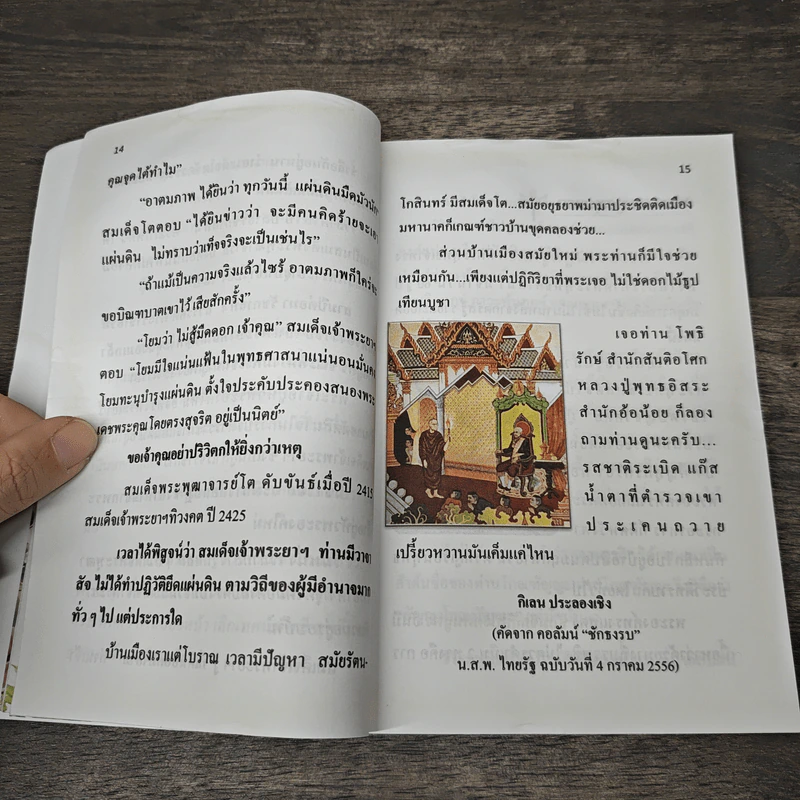 14
คุณจุดใต้ทำไม”
“อาตมภาพ ได้ยินว่า ทุกวันนี้ แผ่นดินมืดมัวนัก”
สมเด็จโตตอบ “ได้ยินข่าวว่า จะมีคนคิดร้ายจะเอา
แผ่นดิน ไม่ทราบว่าเท็จจริงจะเป็นเช่นไร”
“ถ้าแม้เป็นความจริงแล้วไซร้ อาตมภาพก็ใคร่จะ
ขอบิณฑบาตเขาไว้เสียสักครั้ง”
“โยมว่า ไม่สู้มืดดอก เจ้าคุณ” สมเด็จเจ้าพระยาฯ
ตอบ “โยมมีใจแน่นแฟ้นในพุทธศาสนาแน่นอนมั่นคง
โยมทะนุบำรุงแผ่นดิน ตั้งใจประคับประคองสนองพระ
เดชพระคุณโดยตรงสุจริต อยู่เป็นนิตย์”
ขอเจ้าคุณอย่าปริวิตกให้ยิ่งกว่าเหตุ
สมเด็จพระพุฒาจารย์โต ดับขันธ์เมื่อปี 2415
สมเด็จเจ้าพระยาฯทิวงคต ปี 2425
เวลาได้พิสูจน์ว่า สมเด็จเจ้าพระยาฯ ท่านมีวาจา
สัจ ไม่ได้ทำปฏิวัติยึดแผ่นดิน ตามวิถีของผู้มีอำนาจมาก
ทั่ว ๆ ไป แต่ประการใด
บ้านเมืองเราแต่โบราณ เวลามีปัญหา สมัยรัตน-
15
โกสินทร์ มีสมเด็จโต...สมัยอยุธยาพม่ามาประชิดติดเมือง
มหานาคก็เกณฑ์ชาวบ้านขุดคลองช่วย...
ส่วนบ้านเมืองสมัยใหม่ พระท่านก็มีใจช่วย
เหมือนกัน...เพียงแต่ปฏิกิริยาที่พระเจอ ไม่ใช่ดอกไม้ธูป
เทียนบูชา
เจอท่าน โพธิ
รักษ์ สำนักสันติอโศก
หลวงปู่พุทธอิสระ
สำนักอ้อน้อย ก็ลอง
ถามท่านดูนะครับ...
รสชาติระเบิด แก๊ส
น้ำตาที่ตำรวจเขา
ประเคนถวาย
เปรี้ยวหวานมันเค็มแค่ไหน
กิเลน ประลองเชิง
(คัดจาก คอลัมน์ “ชักธงรบ”
น.ส.พ. ไทยรัฐ ฉบับวันที่ 4 กราคม 2556)